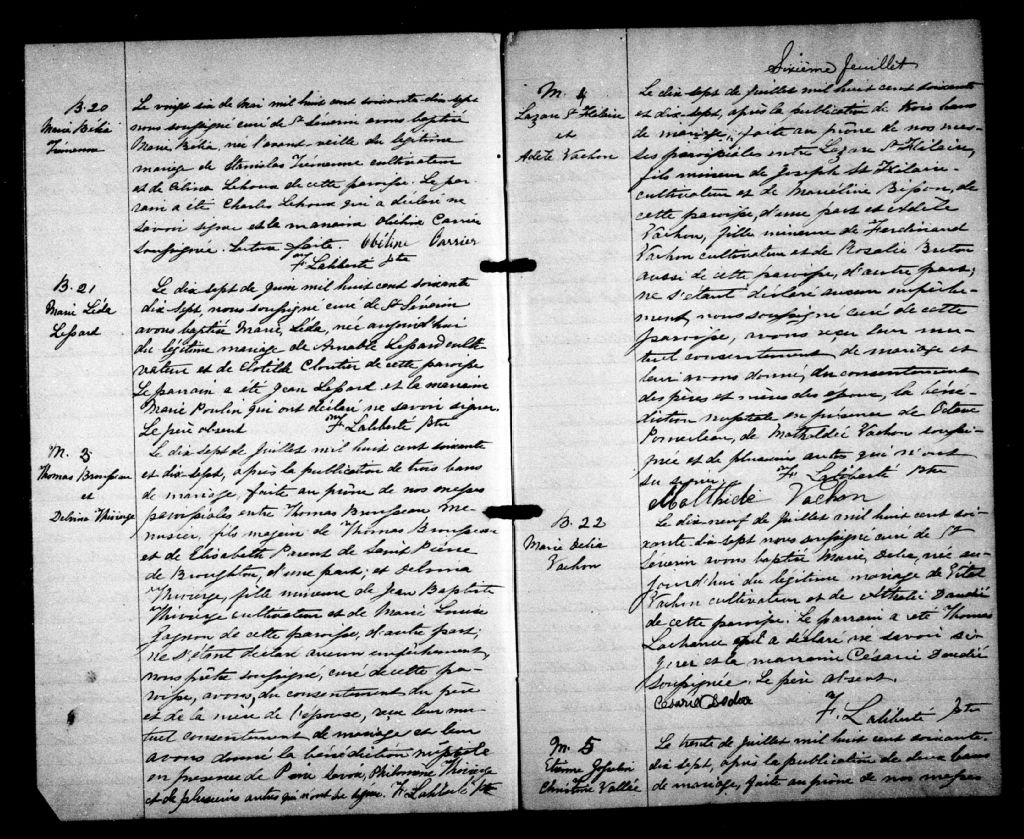 B. 20
Marie Bibia
Trémenne
Le vingt six de Mai mil huit cent soixante dix sept
nous soussigné curé de St Séverin avons baptisé
Marie, Bibia, née l'avant veille du légitime
mariage de Stanislas cultivateur
et de Célina Lehoux de cette paroisse. Le par-
rain a été Charles Lehoux qui a déclaré ne
savoir signer et la marraine Carrier
soussignée. Lecture faite. Obéline Carrier
F. Laliberté Ptre
B. 21
Marie Léda
Lessard
Le dix sept de Juin mil huit cent soixante
dix sept, nous soussigné curé de St Séverin
avons baptisé Marie, Léda, née aujourd'hui
du légitime mariage de Amable Lessard culti-
vateur et de Clotilde Cloutier de cette paroisse
Le parrain a été Jean Lessard et la marraine
Marie Poulin qui ont déclaré ne savoir signer.
Le père absent F. Laliberté Ptre
M. 3
Thomas Brousseau
et
Delvina Thivierge
Le dix sept de Juillet mil huit cent soixante
et dix sept, après la publication de trois bans
de mariage, faite au prône de nos messes
paroissiales entre Thomas Brousseau me-
nuisier, fils majeur de Thomas Brousseau
et de Elisabeth Parent de Saint Pierre
de Broughton, d'une part; et Delvina
Thivierge, fille mineure de Jean Baptiste
Thivierge cultivateur et de Marie Louise
Gagnon de cette paroisse, d'autre part;
ne s'étant déclaré aucun empêchement,
nous prêtre soussigné, curé de cette pa-
roisse, avons, du consentement du père
et de la mère de l'épouse, reçu leur mu-
tuel consentement de mariage et leur
avons donné la bénédiction nuptiale
en présence de Philomène Thivierge
et de plusieurs autres qui n'ont su signer. F. Laliberté Ptre
Sixième feuillet
M. 4
Lazare St Hilaire
et
Adèle Vachon
Le dix sept de Juillet mil huit cent soixante
et dix sept, après la publication de trois bans
de mariage, faite au prône de nos mes-
ses paroissiales entre Lazare St Hilaire,
fils mineur de Joseph St Hilaire
cultivateur et de Marcéline Bisson, de
cette paroisse, d'une part et Adèle
Vachon, fille mineure de Ferdinand
Vachon cultivateur et de Rosalie Breton
aussi de cette paroisse, d'autre part;
ne s'étant déclaré aucun empêche-
ment, nous soussigné curé de cette
paroisse, avons reçu leur mu-
tuel consentement de mariage et
leur avons donné, du consentement
des pères et mères des époux, la béné-
diction nuptiale en présence de Octave
Pomerleau, de Mathilde Vachon soussi-
gnée et de plusieurs autres qui n'ont
su signer. F. Laliberté Ptre
Malthide Vachon
B. 22
Marie Delia
Vachon
Le dix neuf de Juillet mil huit cent soi-
xante dix sept nous soussigné curé de St
Séverin avons baptisé Marie, Delia, née au-
jourd'hui du légitime mariage de Vital
Vachon cultivateur et de
de cette paroisse. Le parrain a été Thomas
Lachance qui a déclaré ne savoir si-
gner et la marraine Césarie
soussignée. Le père absent.
Césarie
F. Laliberté Ptre
M. 5
Etienne
Christine Vallée
Le trente de Juillet mil huit cent soixante-
dix sept, après la publication de deux bans
de mariage, faite au prône de nos messes